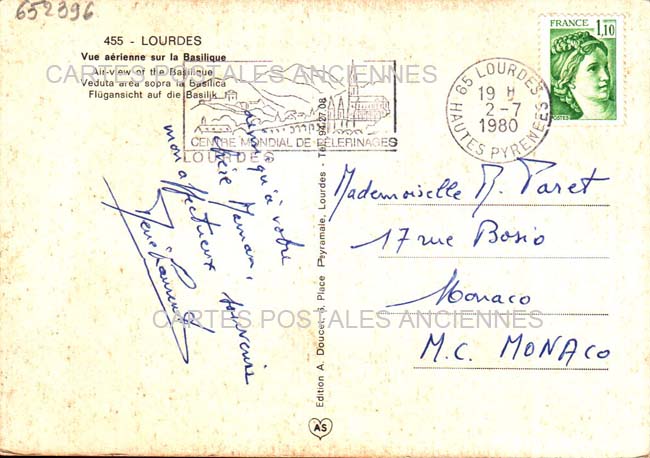 652396
455 - LOURDES
Vue aérienne sur la Basilique
Air-view of the Basilique
Veduta area sopra la Basilica
Flügansicht auf die Basilik
CARTES POSTALES ANCIENNES
CENTRE MONDIAL DE PÈLERINAGES
LOURDES
FRANCE
1,10
POSTES
65 LOURDES
19 H
2-7
1980
HAUTES PYRENEES
qu'à votre
chère Maman,
mon affectueux souvenir
Edition A. Doucet, 6, Place Peyramale, Lourdes - Tél. 94.27.08
AS
Mademoiselle R. Paret
17 rue Bosio
Monaco
M.C. MONACO
CARTES POSTALES ANCIENNES